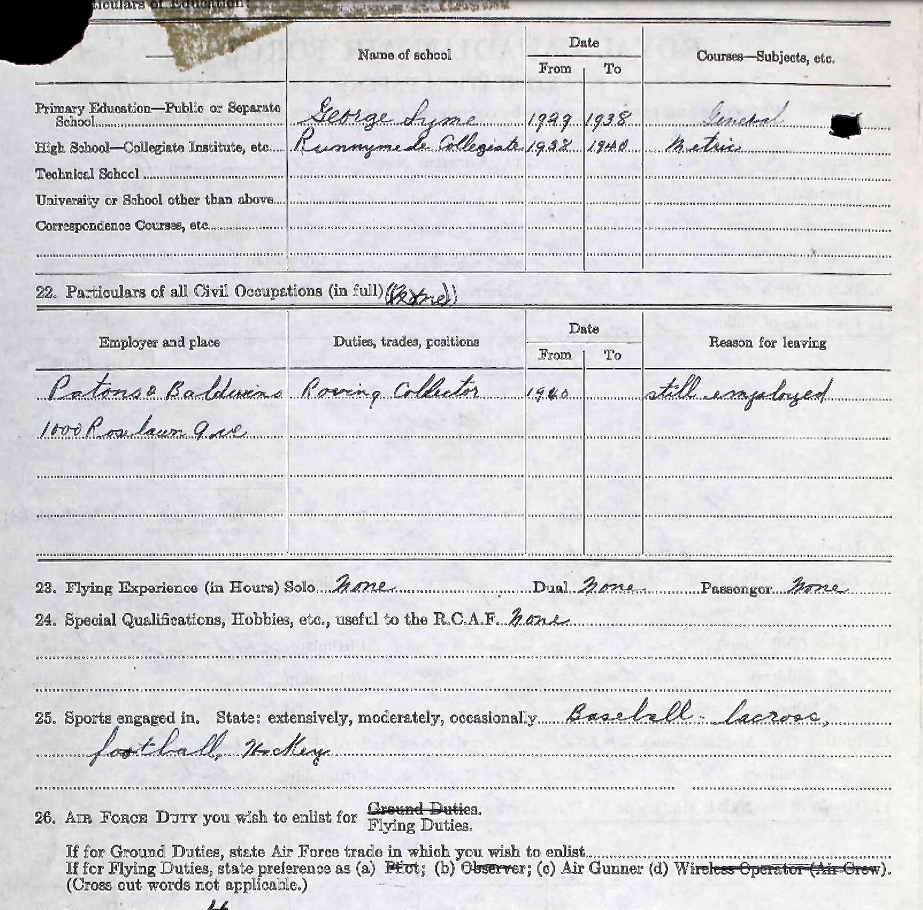 ticulars of Education
Name of school
Date
From To
Courses—Subjects, etc.
Primary Education—Public or Separate
School George Syme 1929 1938 General
High School—Collegiate Institute, etc. Runnymede Collegiate 1938 1940 Metric
Technical School
University or School other than above
Correspondence Courses, etc.
22. Particulars of all Civil Occupations (in full)
Employer and place
Duties, trades, positions
Date
From To
Reason for leaving
Patons & Baldwins Roving Collector 1940 still employed
1000 Roselawn Ave
23. Flying Experience (in Hours) Solo None Dual None Passenger None
24. Special Qualifications, Hobbies, etc., useful to the R.C.A.F. None
25. Sports engaged in. State: extensively, moderately, occasionally Baseball - lacross,
football, Hockey
26. AIR FORCE DUTY you wish to enlist for Ground Duties.
Flying Duties.
If for Ground Duties, state Air Force trade in which you wish to enlist
If for Flying Duties, state preference as (a) Pilot; (b) Observer; (c) Air Gunner (d) Wireless Operator (Air Crew).
(Cross out words not applicable.)